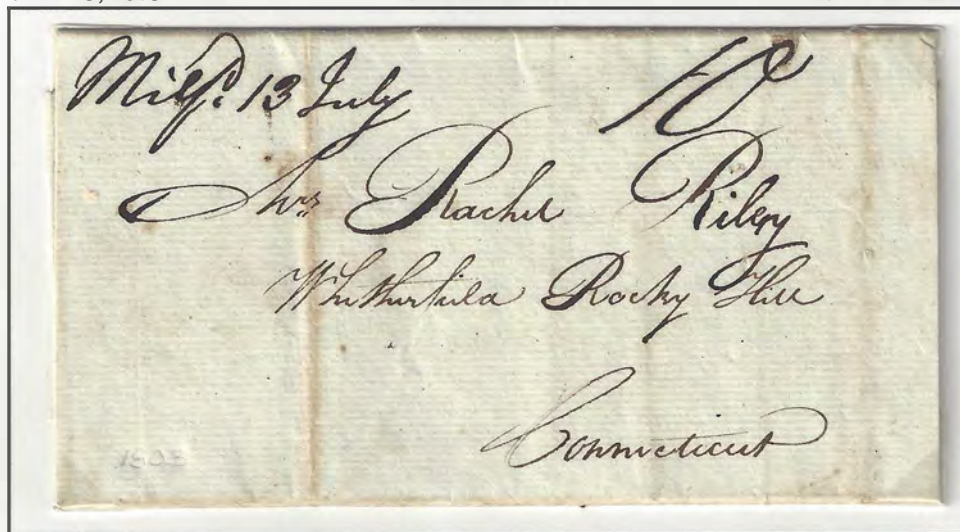 Milfd. 13 July 10
Mrs Rachel Riley
Whethersfield Rocky Hill
Connecticut